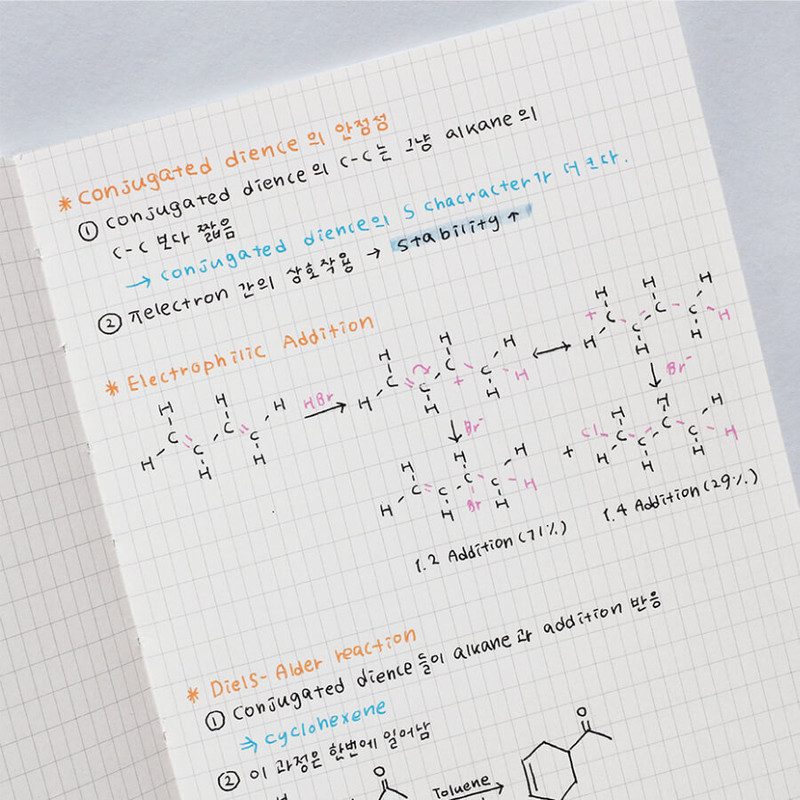 * Conjugated dience의 안정성
① Conjugated dience의 C-C는 그냥 alkane의
C-C 보다 짧음
→ conjugated dience의 S chacracter가 더 크다.
② πelectron 간의 상호작용 → stability ↑
* Electrophilic Addition
H H H H H H
C C C C
HBr
H H H H H H H
C C C C
+
H H H H H H H
+ C C C C
Br⁻
Br⁻
H H H H H H H
C C C C
Br
+
Cl H H H H H H H
C C C C
1.2 Addition (71%)
1.4 Addition (29%)
* Diels-Alder reaction
① Conjugated dience들이 alkane과 addition 반응
⇒ cyclohexene
② 이 과정은 한번에 일어남
O
Toluene
O